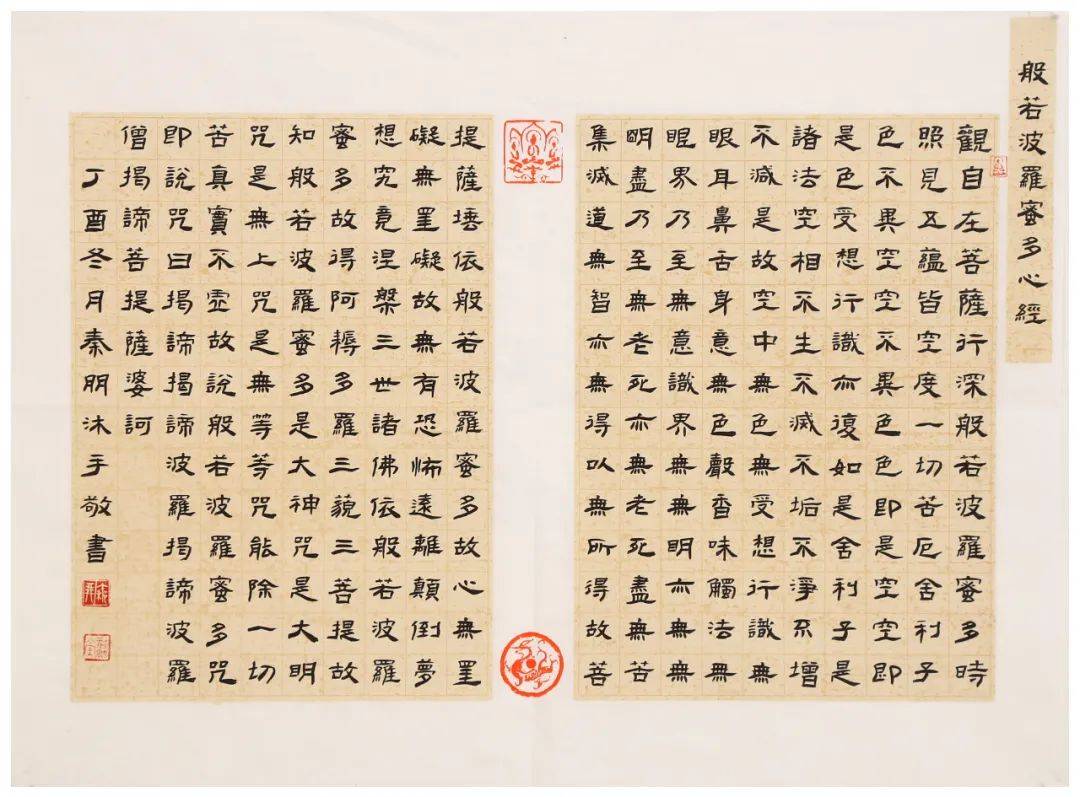 般若波羅蜜多心經
觀自在菩薩行深般若波羅蜜多時
照見五蘊皆空度一切苦厄舍利子
色不異空空不異色色即是空空即
是色受想行識亦復如是舍利子是
諸法空相不生不滅不垢不淨不增
不減是故空中無色無受想行識無
眼耳鼻舌身意無色聲香味觸法無
眼界乃至無意識界無無明亦無無
明盡乃至無老死亦無老死盡無苦
集滅道無智亦無得以無所得故菩
提薩埵依般若波羅蜜多故心無罣
礙無罣礙故無有恐怖遠離顛倒夢
想究竟涅槃三世諸佛依般若波羅
蜜多故得阿耨多羅三藐三菩提故
知般若波羅蜜多是大神咒是大明
咒是無上咒是無等等咒能除一切
苦真實不虛故說般若波羅蜜多咒
即說咒曰揭諦揭諦波羅揭諦波羅
僧揭諦菩提薩婆訶
丁酉冬月秦朋沐手敬書